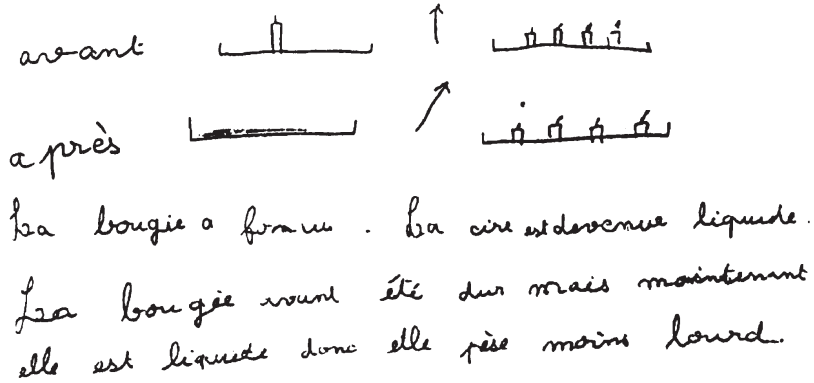 avant
après
La bougie a fondu. La cire est devenue liquide.
La bougie avant été dur mais maintenant
elle est liquide donc elle pèse moins lourd.